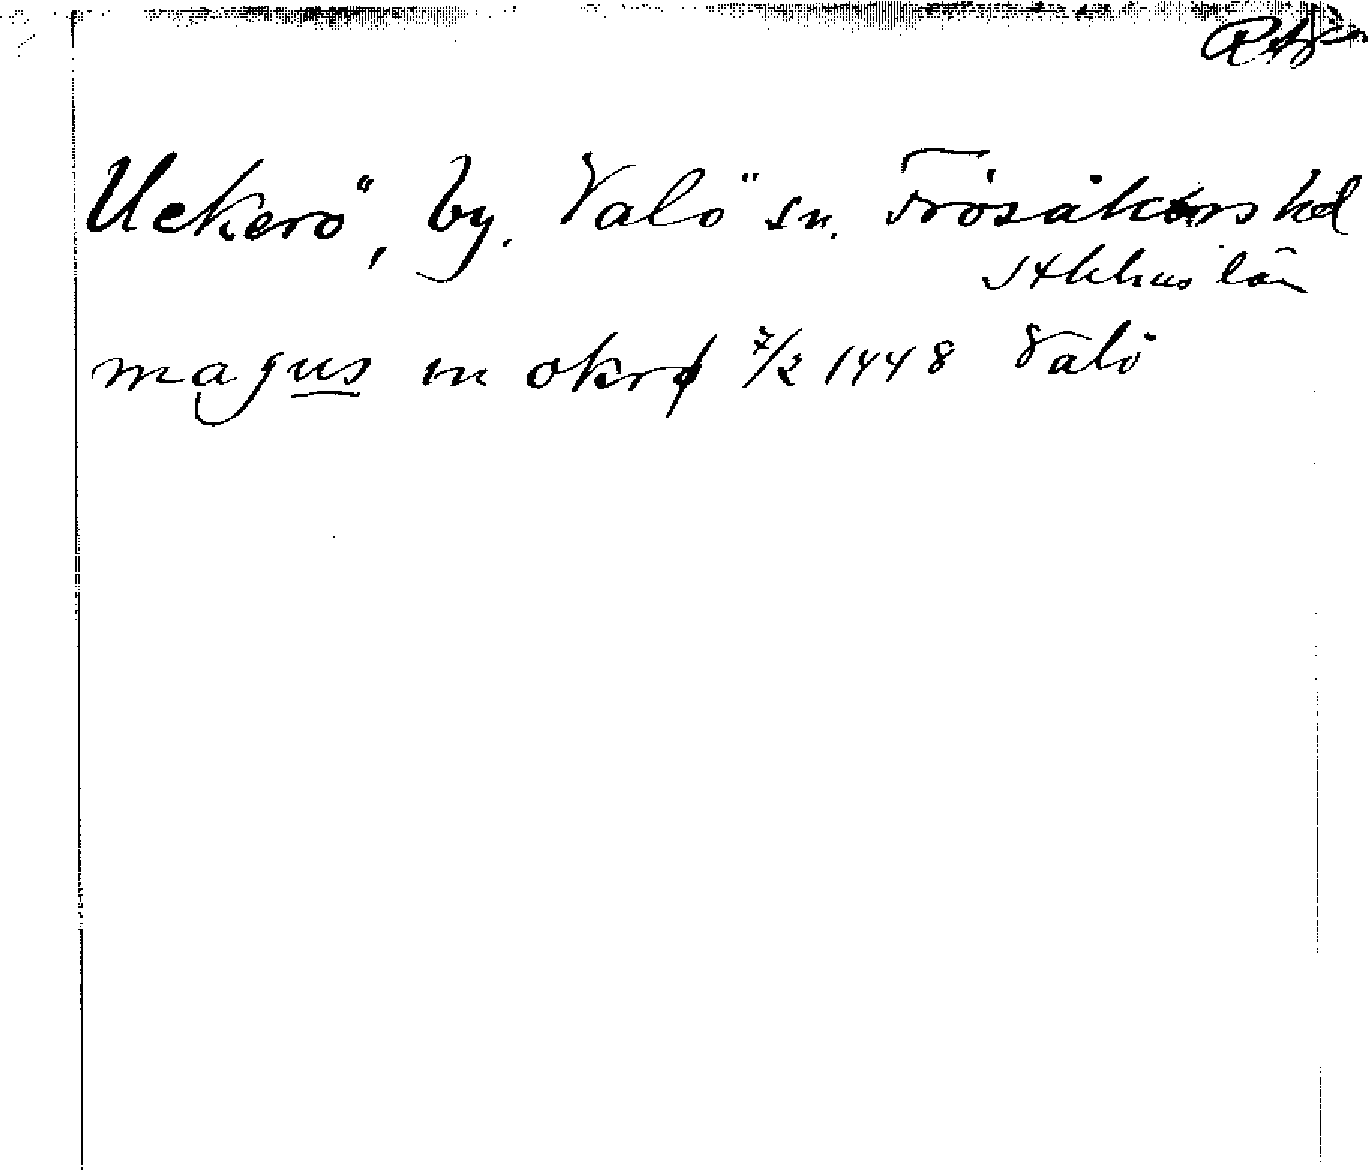 RAp
Uckerö, by. Valö sn. Frösåkers hd
Sthlms län
magus in okrø 7/2 1448 Valö